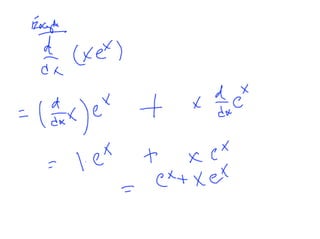 Example
d/dx (xe^x)
= (d/dx x) e^x + x d/dx e^x
= 1·e^x + x e^x
= e^x + x e^x